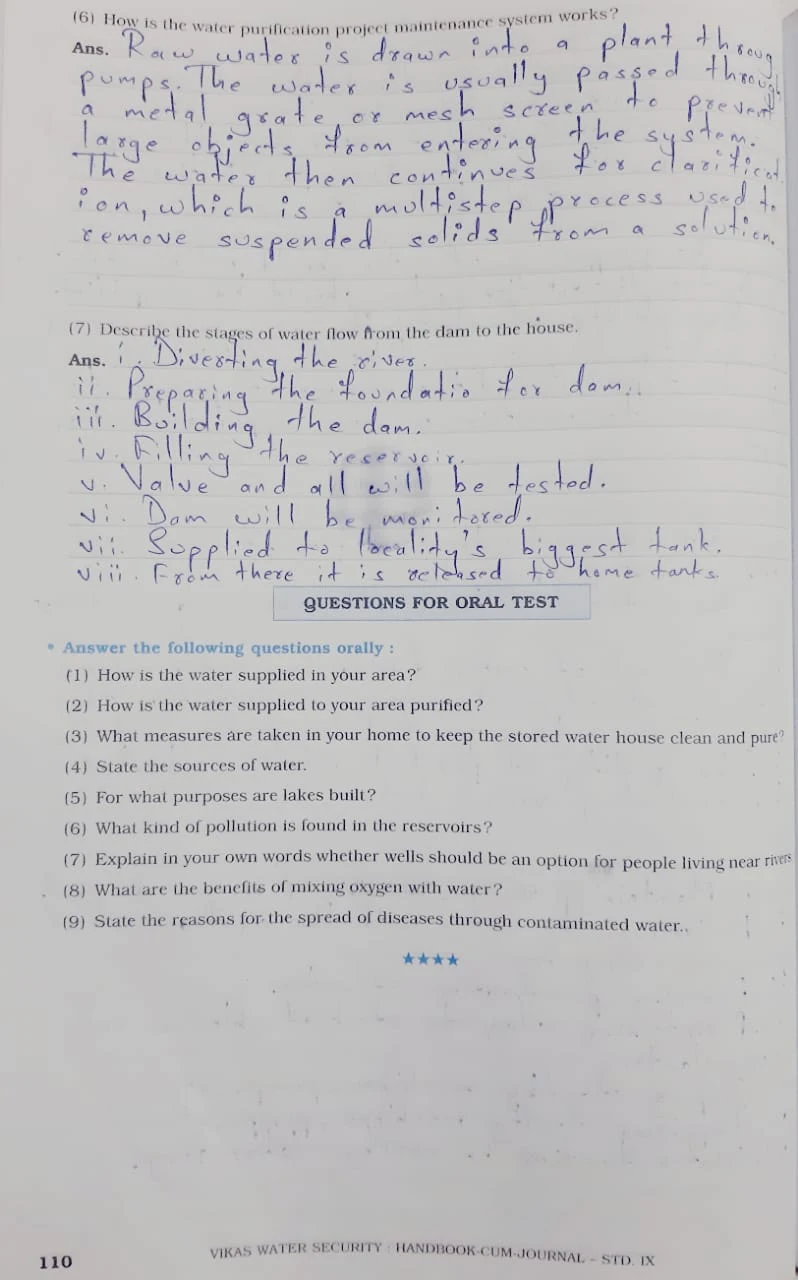 (6) How is the water purification project maintenance system works?
Ans. Raw water is drawn into a plant throug
pumps. The water is usually passed throug
a metal grate, or mesh screen to prevent
large objects from entering the system.
The water then continues for clarificat
ion, which is a multistep process used to
remove suspended solids from a solution.
(7) Describe the stages of water flow from the dam to the house.
Ans. i. Diverting the river.
ii. Preparing the foundatio for dam..
iii. Building the dam.
iv. Filling the reservoir.
v. Valve and all will be tested.
vi. Dam will be monitored.
vii. Supplied to locality's biggest tank.
viii. From there it is released to home tanks.
QUESTIONS FOR ORAL TEST
• Answer the following questions orally :
(1) How is the water supplied in your area?
(2) How is the water supplied to your area purified?
(3) What measures are taken in your home to keep the stored water house clean and pure?
(4) State the sources of water.
(5) For what purposes are lakes built?
(6) What kind of pollution is found in the reservoirs?
(7) Explain in your own words whether wells should be an option for people living near rivers
(8) What are the benefits of mixing oxygen with water?
(9) State the reasons for the spread of diseases through contaminated water..
★★★★
110
VIKAS WATER SECURITY : HANDBOOK-CUM-JOURNAL – STD. IX